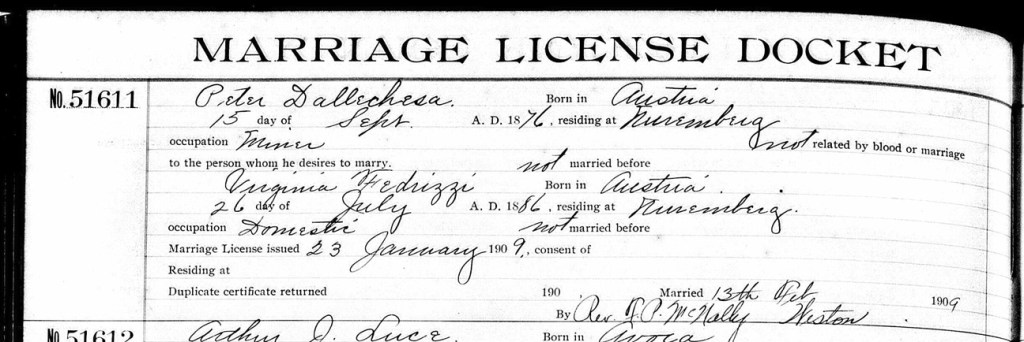 MARRIAGE LICENSE DOCKET
No. 51611 Peter Dallechesa. Born in Austria
15 day of Sept. A. D. 1876, residing at Nuremberg
occupation Miner not related by blood or marriage
to the person whom he desires to marry. not married before
Virginia Fedrizzi Born in Austria.
26 day of July A. D. 1886, residing at Nuremberg.
occupation Domestic not married before
Marriage License issued 23 January 1909., consent of
Residing at
Duplicate certificate returned 190 Married 13th Feb 1909
By Rev. J. P. McNally Weston
No. 51612 Arthur J. Luce. Born in Avoca